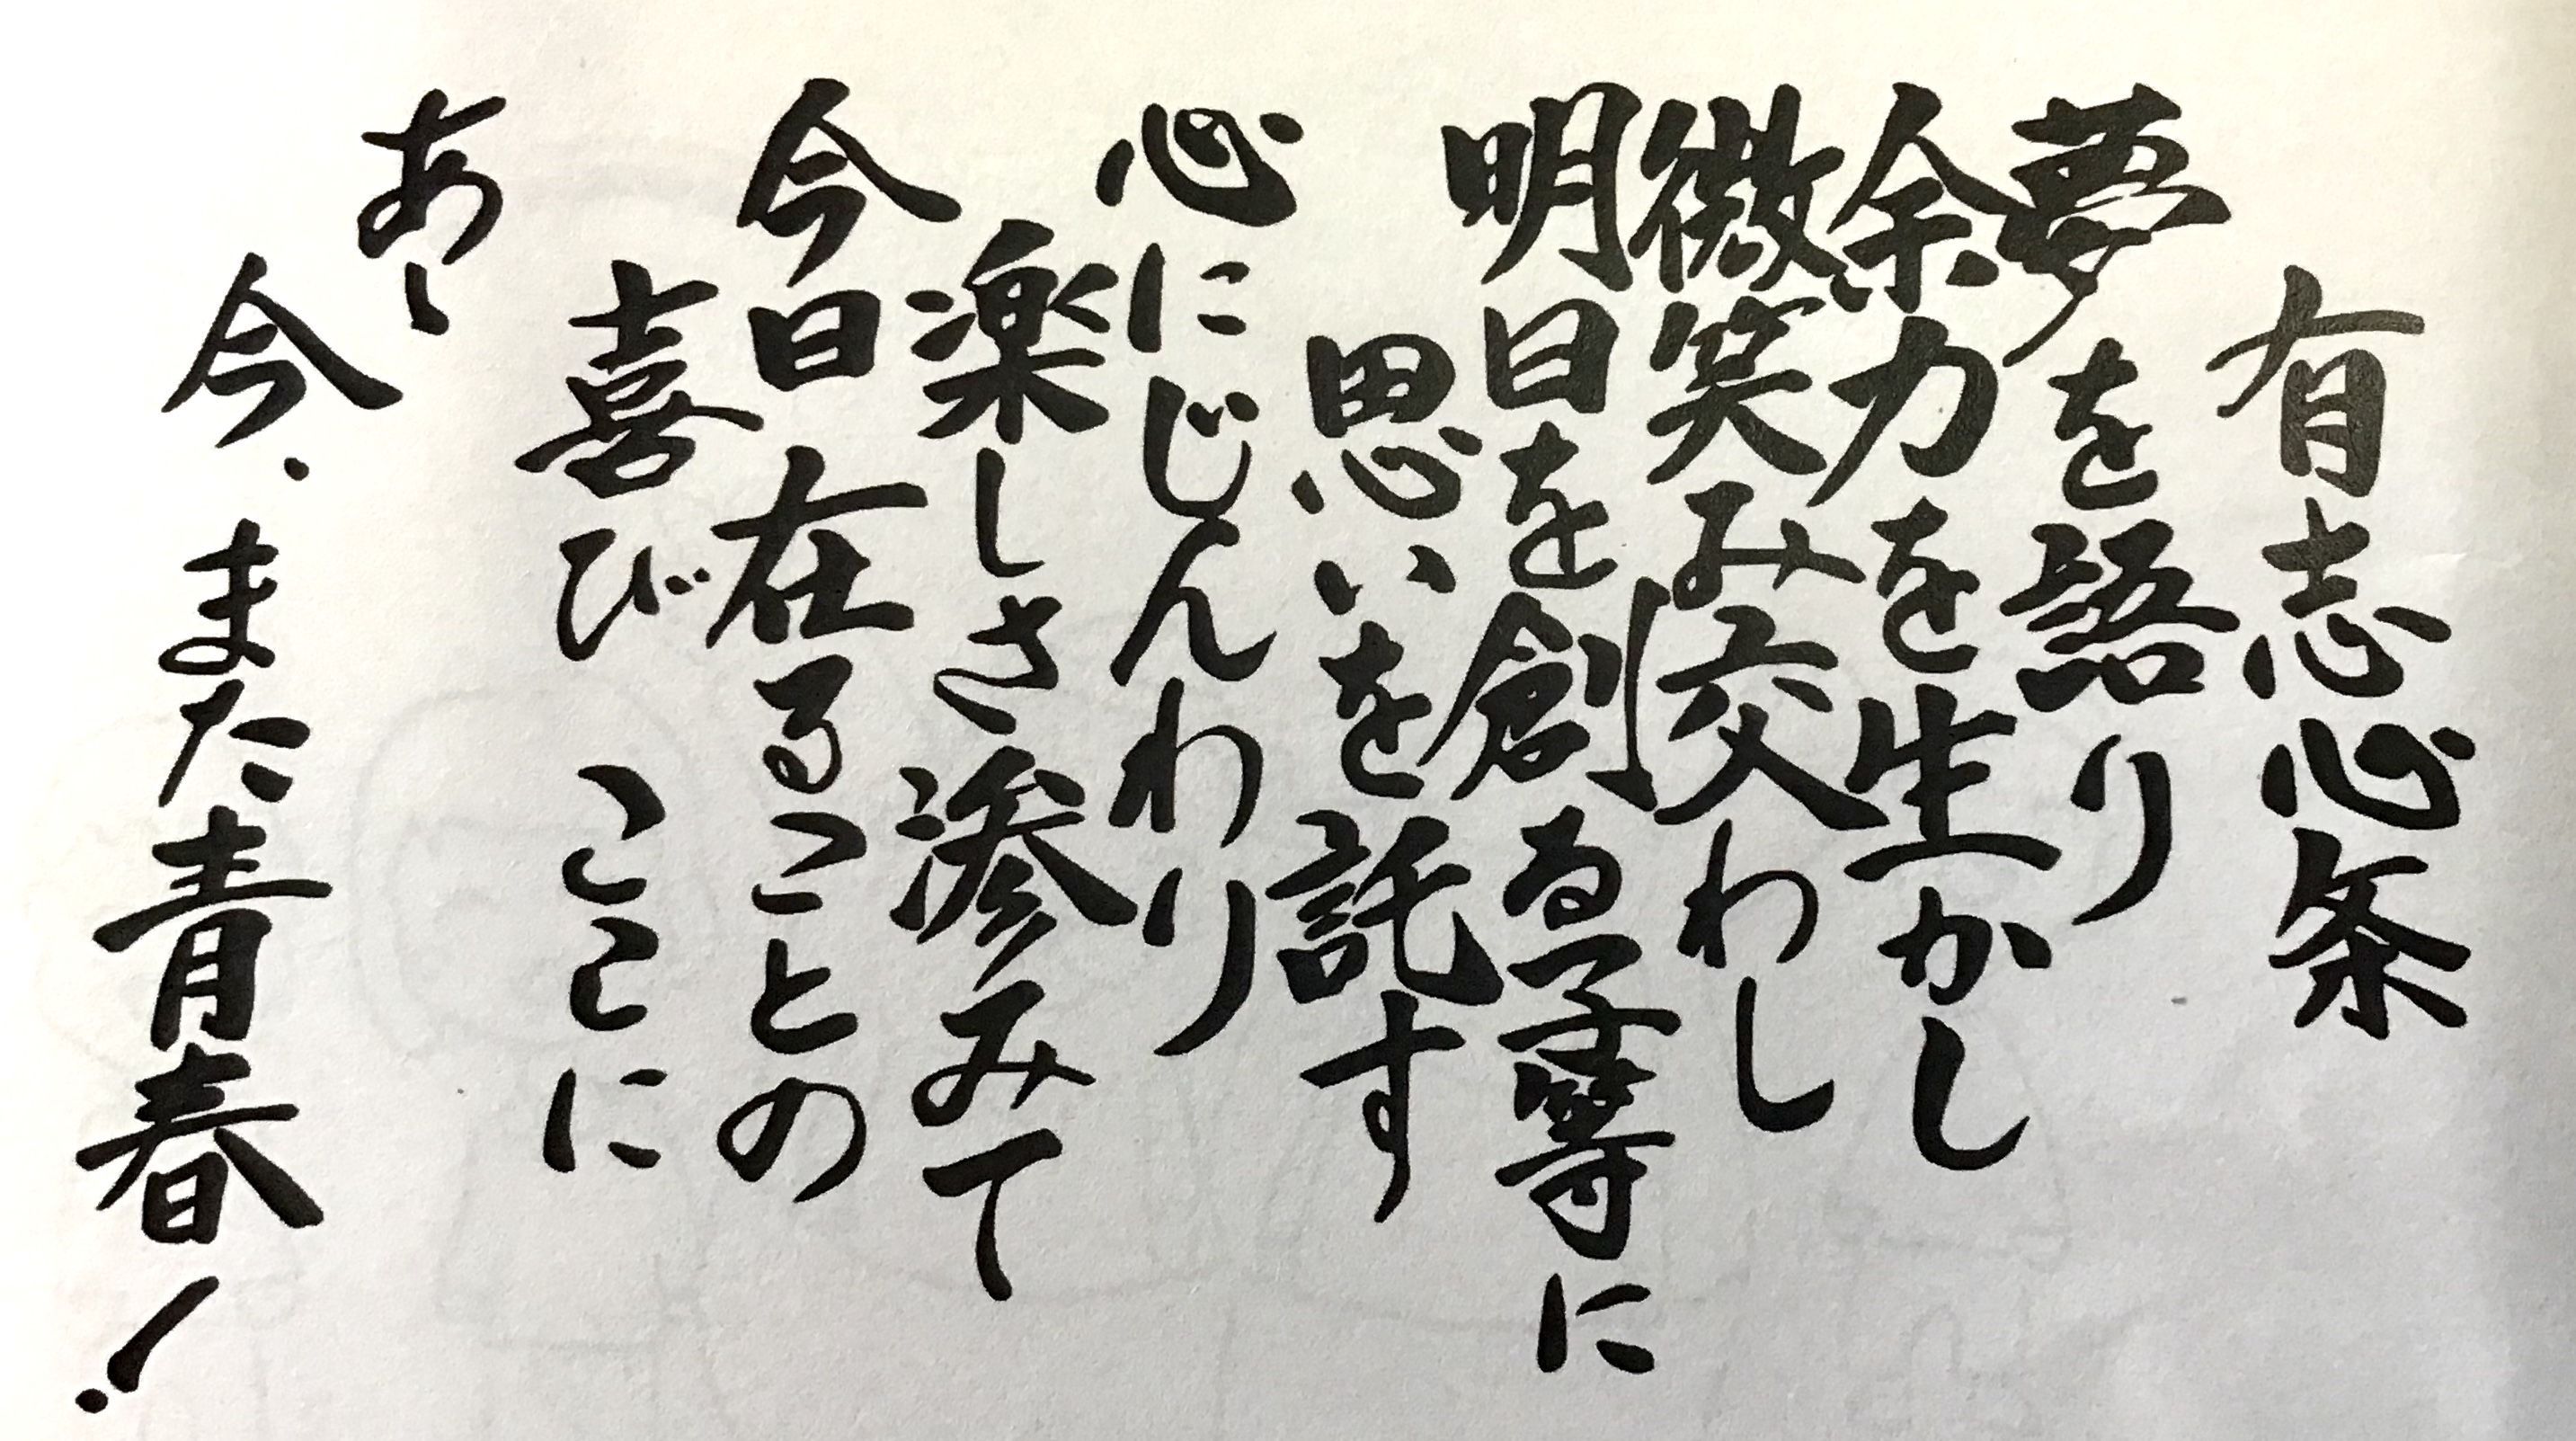 有志心条
夢を語り
余力を生かし
微笑み交わし
明日を創る子等に
思いを託す
心にじんわり
楽しさ渗みて
今日在ることの
喜び ここに
あゝ
今、また青春!